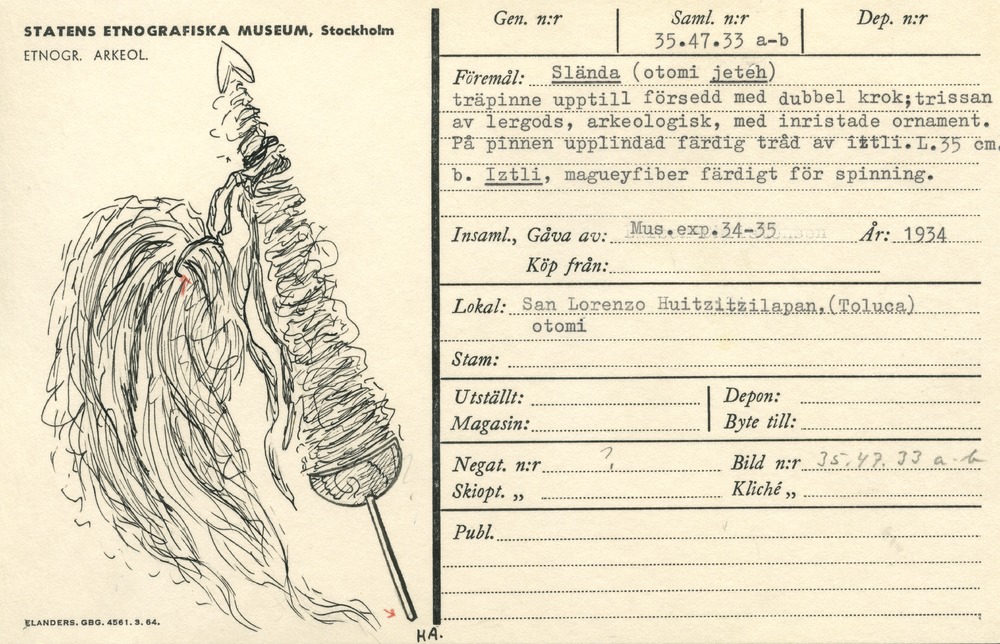 STATENS ETNOGRAFISKA MUSEUM, Stockholm
ETNOGR. ARKEOL.
ELANDERS. GBG. 4561. 3. 64.
HA.
Gen. n:r
Saml. n:r
35.47.33 a-b
Dep. n:r
Föremål: Slända (otomi jeteh)
träpinne upptill försedd med dubbel krok; trissan
av lergods, arkeologisk, med inristade ornament.
På pinnen upplindad färdig tråd av iztli. L.35 cm.
b. Iztli, magueyfiber färdigt för spinning.
Insaml., Gåva av: Mus.exp.34-35 År: 1934
Köp från:
Lokal: San Lorenzo Huitzitzilapan, (Toluca)
otomi
Stam:
Utställt: Depon:
Magasin: Byte till:
Negat. n:r ?. Bild n:r 35.47.33 a-b
Skiopt. „ Kliché „
Publ.